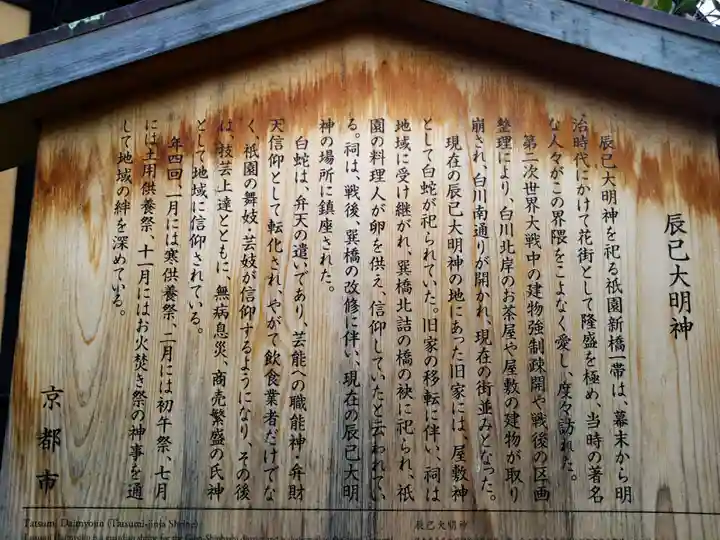 辰巳大明神
辰巳大明神を祀る祇園新橋一帯は、幕末から明
治時代にかけて花街として隆盛を極め、当時の著名
な人々がこの界隈をこよなく愛し、度々訪れた。
第二次世界大戦中の建物強制疎開や戦後の区画
整理により、白川北岸のお茶屋や屋敷の建物が取り
崩され、白川南通りが開かれ、現在の街並みとなった。
現在の辰巳大明神の地にあった旧家には、屋敷神
として白蛇が祀られていた。旧家の移転に伴い、祠は
地域に受け継がれ、巽橋北詰の橋の袂に祀られ、祇
園の料理人が卵を供え、信仰していたと云われてい
る。祠は、戦後、巽橋の改修に伴い、現在の辰巳大明
神の場所に鎮座された。
白蛇は、弁天の遣いであり、芸能への職能神・弁財
天信仰として転化され、やがて飲食業者だけでな
く、祇園の舞妓・芸妓が信仰するようになり、その後
は、技芸上達とともに、無病息災、商売繁盛の氏神
として地域に信仰されている。
年四回、一月には寒供養祭、二月には初午祭、七月
には土用供養祭、十一月にはお火焚き祭の神事を通
して地域の絆を深めている。
京都市
Tatsumi Daimyojin (Tatsumi-jinja Shrine)
辰巳大明神